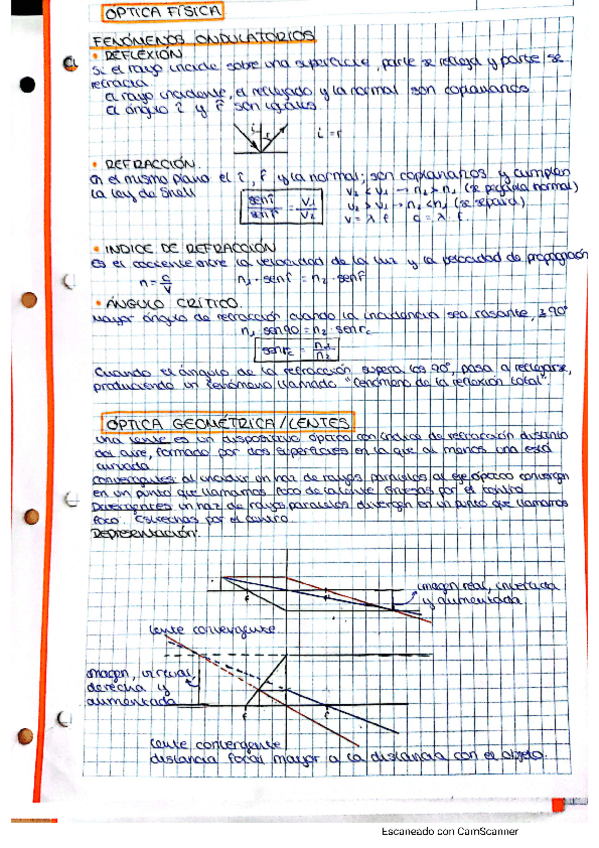 ÓPTICA FÍSICA
FENÓMENOS ONDULATORIOS
• REFLEXIÓN
Si el rayo incide sobre una superficie, parte se refleja y parte se
refracta
El rayo incidente, el reflejado y la normal son coplanarios
El ángulo î y r̂ son iguales
i r
i = r
• REFRACCIÓN.
En el mismo plano el î, r̂ y la normal; son coplanarios y cumplen
la ley de Snell
sen î / sen r̂ = V1 / V2
V2 < V1 → n2 > n1 (se pega a la normal)
V2 > V1 → n2 < n1 (se separa)
v = λ · f c = λ · f.
• INDICE DE REFRACCIÓN
Es el cociente entre la velocidad de la luz y la velocidad de propagación
n = c/v n1 · sen î = n2 · sen r̂
• ÁNGULO CRÍTICO.
Mayor ángulo de refracción cuando la incidencia sea rasante, 90°
n1 sen90 = n2 · sen rc
sen rc = n1 / n2
Cuando el ángulo de la refracción supera los 90°, pasa a reflejarse,
produciendo un fenómeno llamado "fenómeno de la reflexión total".
ÓPTICA GEOMÉTRICA / LENTES
Una lente es un dispositivo óptico con índice de refracción distinto
del aire, formado por dos superficies en la que al menos una está
curvada
Convergentes: al incidir un haz de rayos paralelos al eje óptico convergen
en un punto que llamamos foco de la lente. Gruesas por el centro
Divergentes un haz de rayos paralelos divergen en un punto que llamamos
foco. Estrechas por el centro.
Representación:
imagen real, invertida
y aumentada
F F'
lente convergente.
imagen, virtual,
derecha y
aumentada
F F'
lente convergente
distancia focal mayor a la distancia con el objeto.
Escaneado con CamScanner